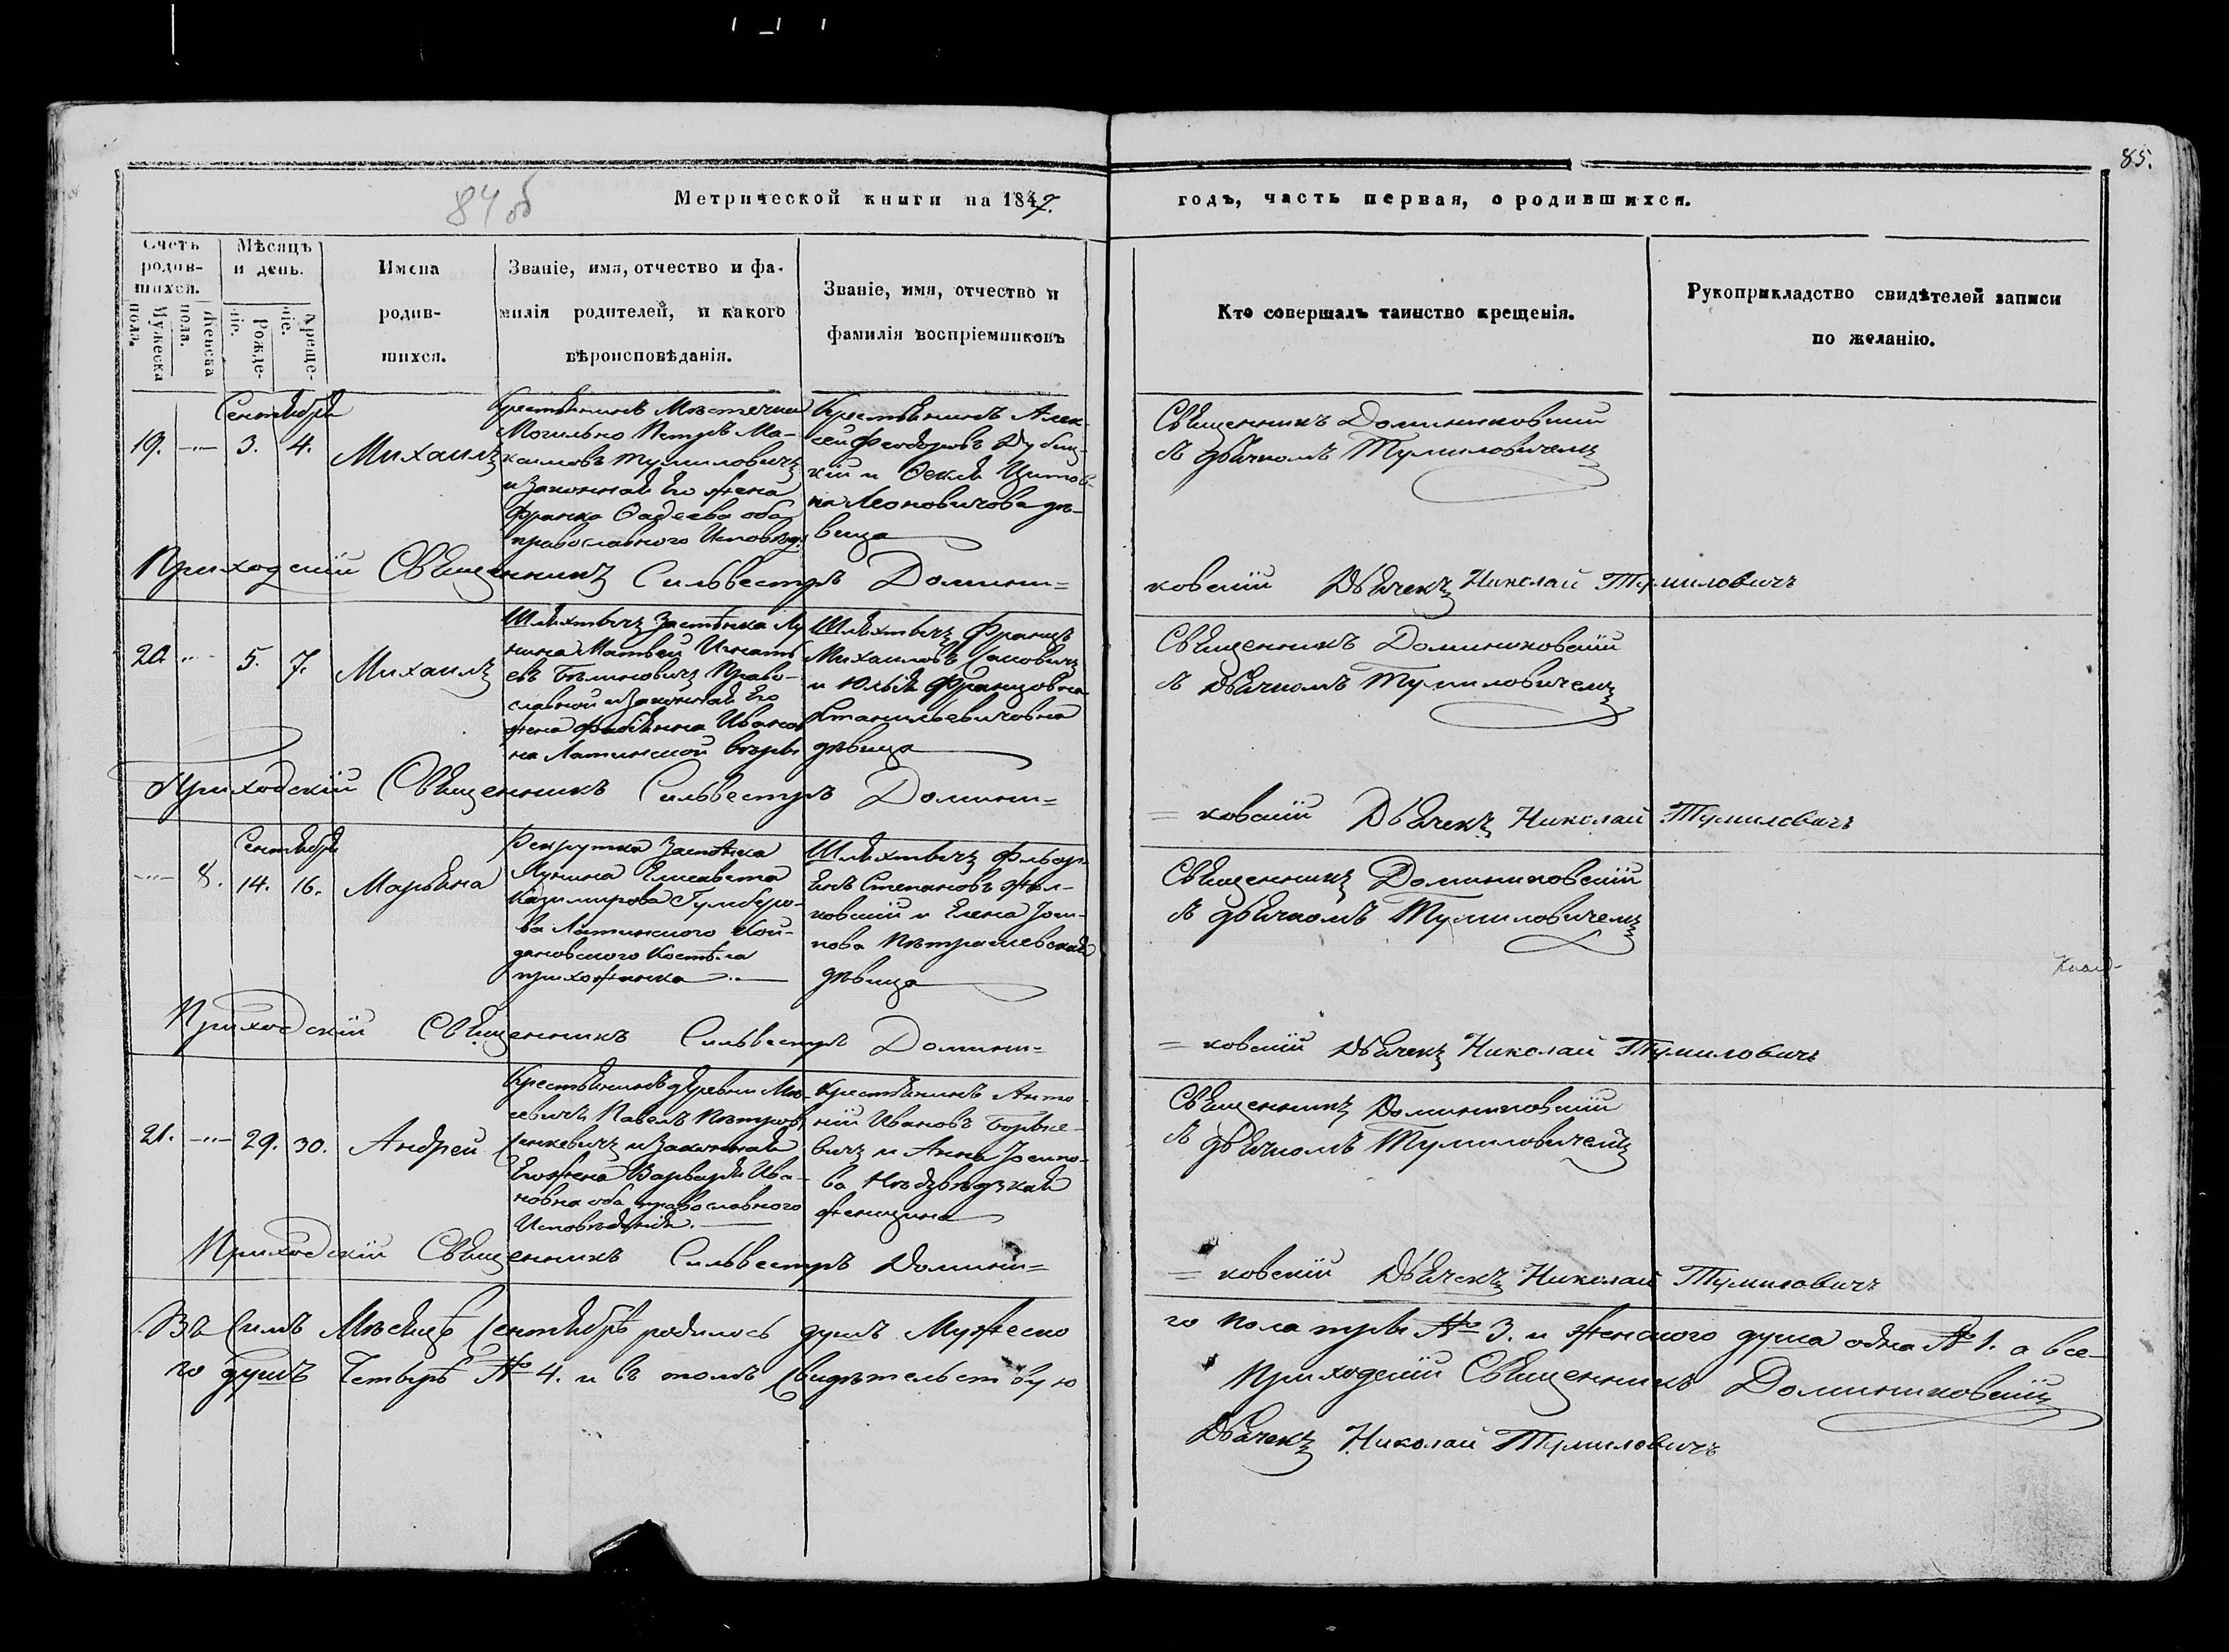 85.
84 об
Метрической книги на 1847.
годъ, часть первая, о родившихся.
Счетъ родив-шихся.
Мужеска пола.
Женска пола.
Мѣсяцъ и день.
Рожде-ніе.
Креще-ніе.
Имена
родив-
шихся.
Званіе, имя, отчество и фа-
милія родителей, и какого
вѣроисповѣданія.
Званіе, имя, отчество и
фамилія воспріемниковъ
Кто совершалъ таинство крещенія.
Рукоприкладство свидѣтелей записи
по желанію.
Сентября
19.
3.
4.
Михаилъ
Крестьянинъ Мѣстечка
Могильно Петръ Ма-
каимовъ Тумиловичъ
и Законная Его жена
Франка Фадеева оба
православного Исповѣд:
Крестьянинъ Алек-
сей Феодоровъ Дубиц-
кій и Фекля Цитов-
на Леоновичова дѣ-
вица
Священникъ Доминиковскій
съ дьячкомъ Тумиловичемъ
Приходскій Священникъ Сильвестръ Домини=
ковскій Дьячекъ Николай Тумиловичъ
20.
5.
7.
Михаилъ
Шляхтичъ Застѣнка Лу
нина Матвей Игнать
евъ Бѣлиновичъ Право-
славной и Законная Его
жена Фабіянна Иванов
на Латинской вѣры
Шляхтичъ Францъ
Михаиловъ Сацовичъ
и Юлія Францовна
Станилевичовна
дѣвица
Священникъ Доминиковскій
съ Дьячкомъ Тумиловичемъ
Приходскій Священникъ Сильвестръ Домини=
= ковскій Дьячекъ Николай Тумиловичъ
Сентября
8.
14.
16.
Марьяна
Рекрутка Застѣнка
Лунина Елисавета
Казимирова Гумберо-
ва Латинского Кой-
дановского Костѣла
прихожанка
Шляхтичъ Флёр-
янъ Степановъ Жол-
ковскій и Елена Іоси-
пова Пѣтрашевская
дѣвица
Священникъ Доминиковскій
съ дьячкомъ Тумиловичемъ
Приходскій Священникъ Сильвестръ Домини=
= ковскій Дьячекъ Николай Тумиловичъ
21.
29.
30.
Андрей
Крестьянинъ деревни Мо-
севичъ Павелъ Пѣтровъ
Сенкевичъ и Законная
Его жена Варвара Ива-
новна оба православного
Исповѣданія.
Крестьянинъ Анто-
ній Ивановъ Борысе-
вичъ и Анна Іосипо-
ва Нѣдзвѣдзкая
женщина
Священникъ Доминиковскій
съ дьячкомъ Тумиловичемъ
Приходскій Священникъ Сильвестръ Домини=
= ковскій Дьячекъ Николай Тумиловичъ
Въ Симъ Мѣсяцѣ Сентябрѣ родилось душъ Мужеско
го пола три № 3. и женского душа одна № 1. а все-
го душъ Четырѣ № 4. и въ томъ Свидѣтельствую
Приходскій Священникъ Доминиковскій
Дьячекъ Николай Тумиловичъ